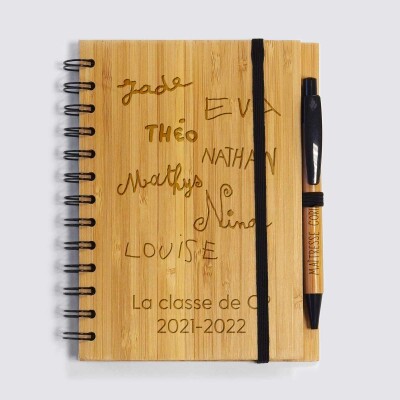 Jade
EVA
THÉO
NATHAN
Mathys
Nina
LOUISE
La classe de CP
2021-2022
MAÎTRESSE